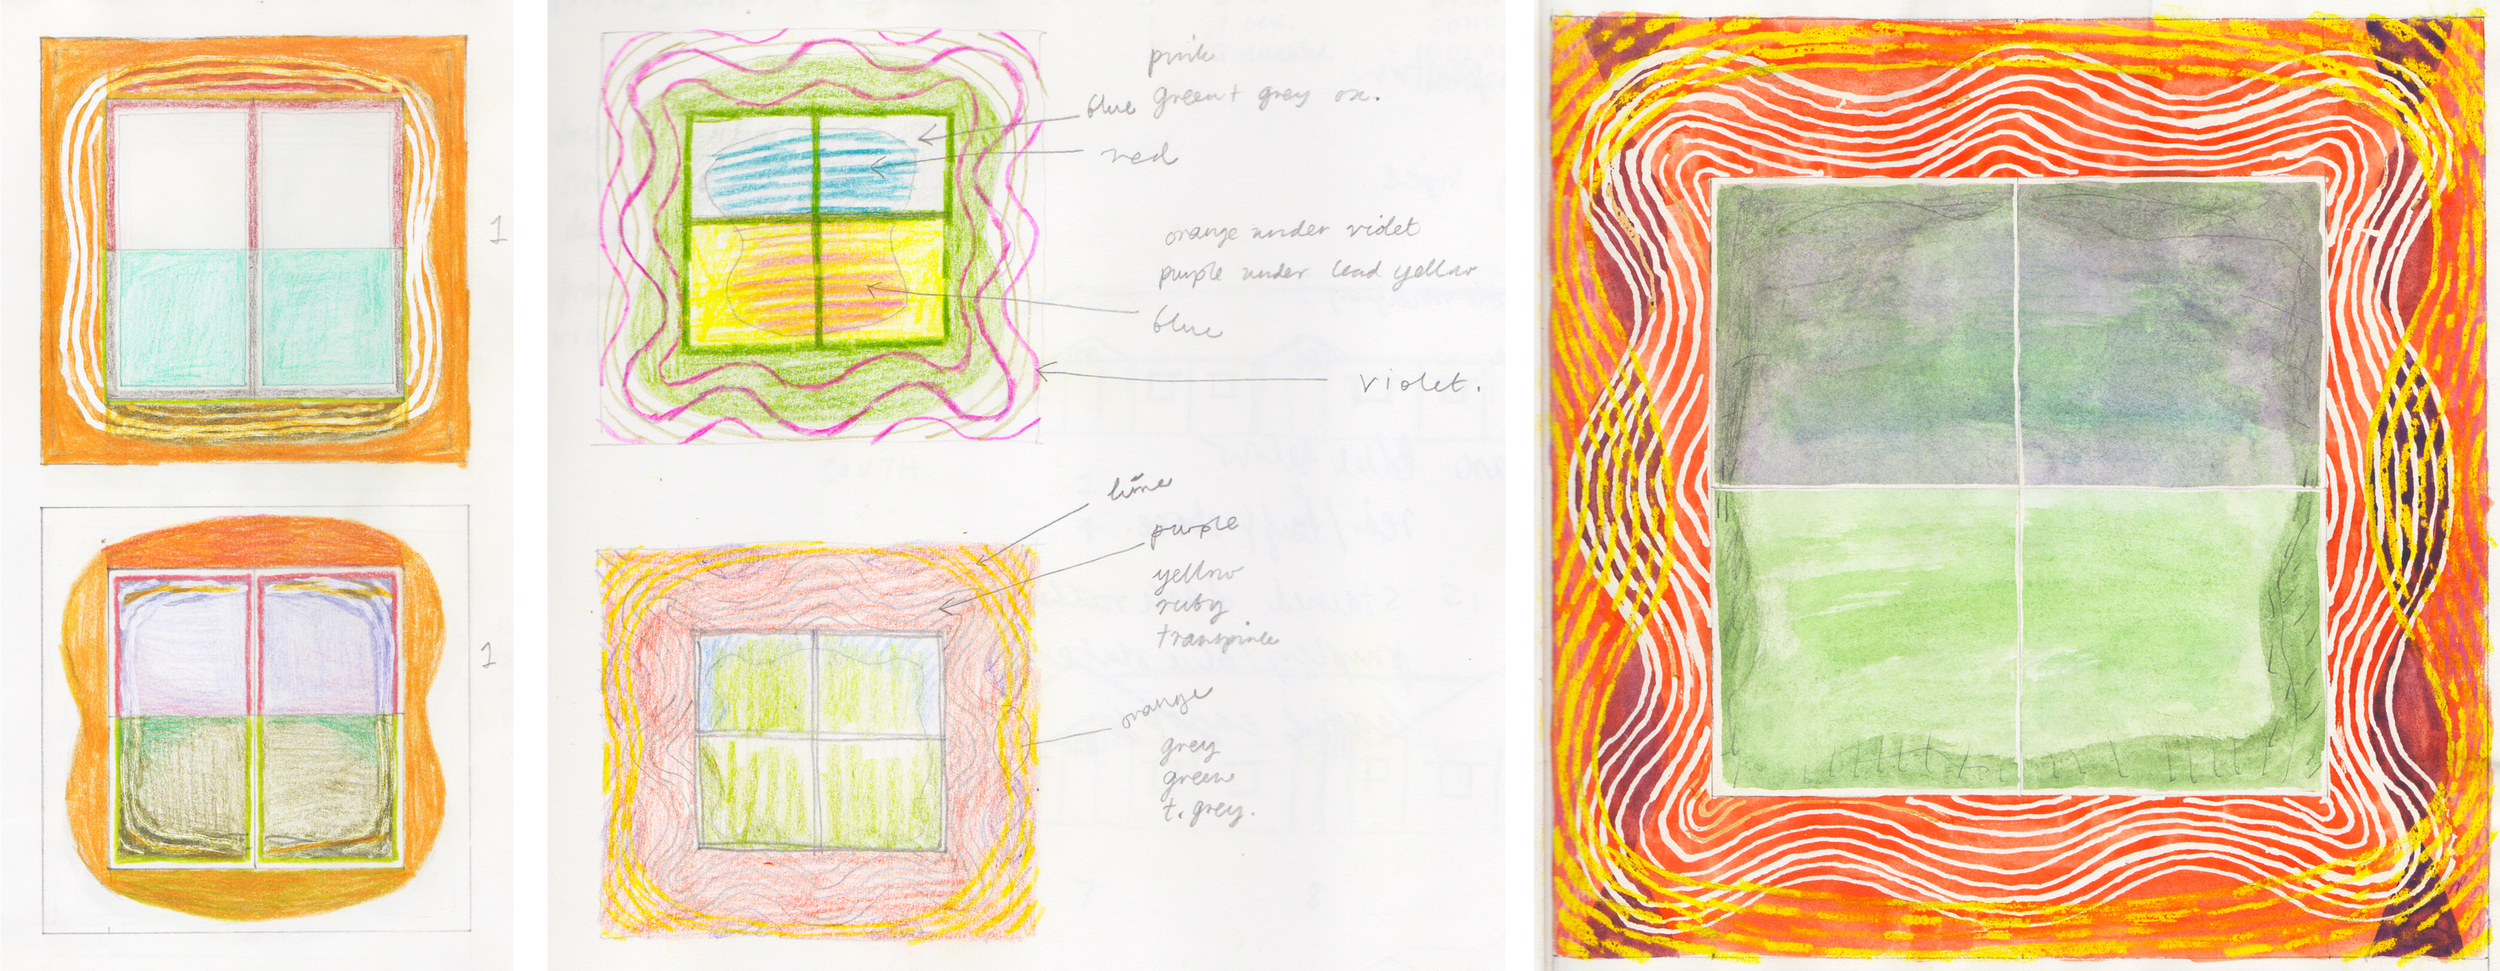 1
1
pink
blue green + grey ox.
red
orange under violet
purple under lead yellow
blue
violet.
lime
purple
yellow
ruby
transpink
orange
grey
green
t. grey.